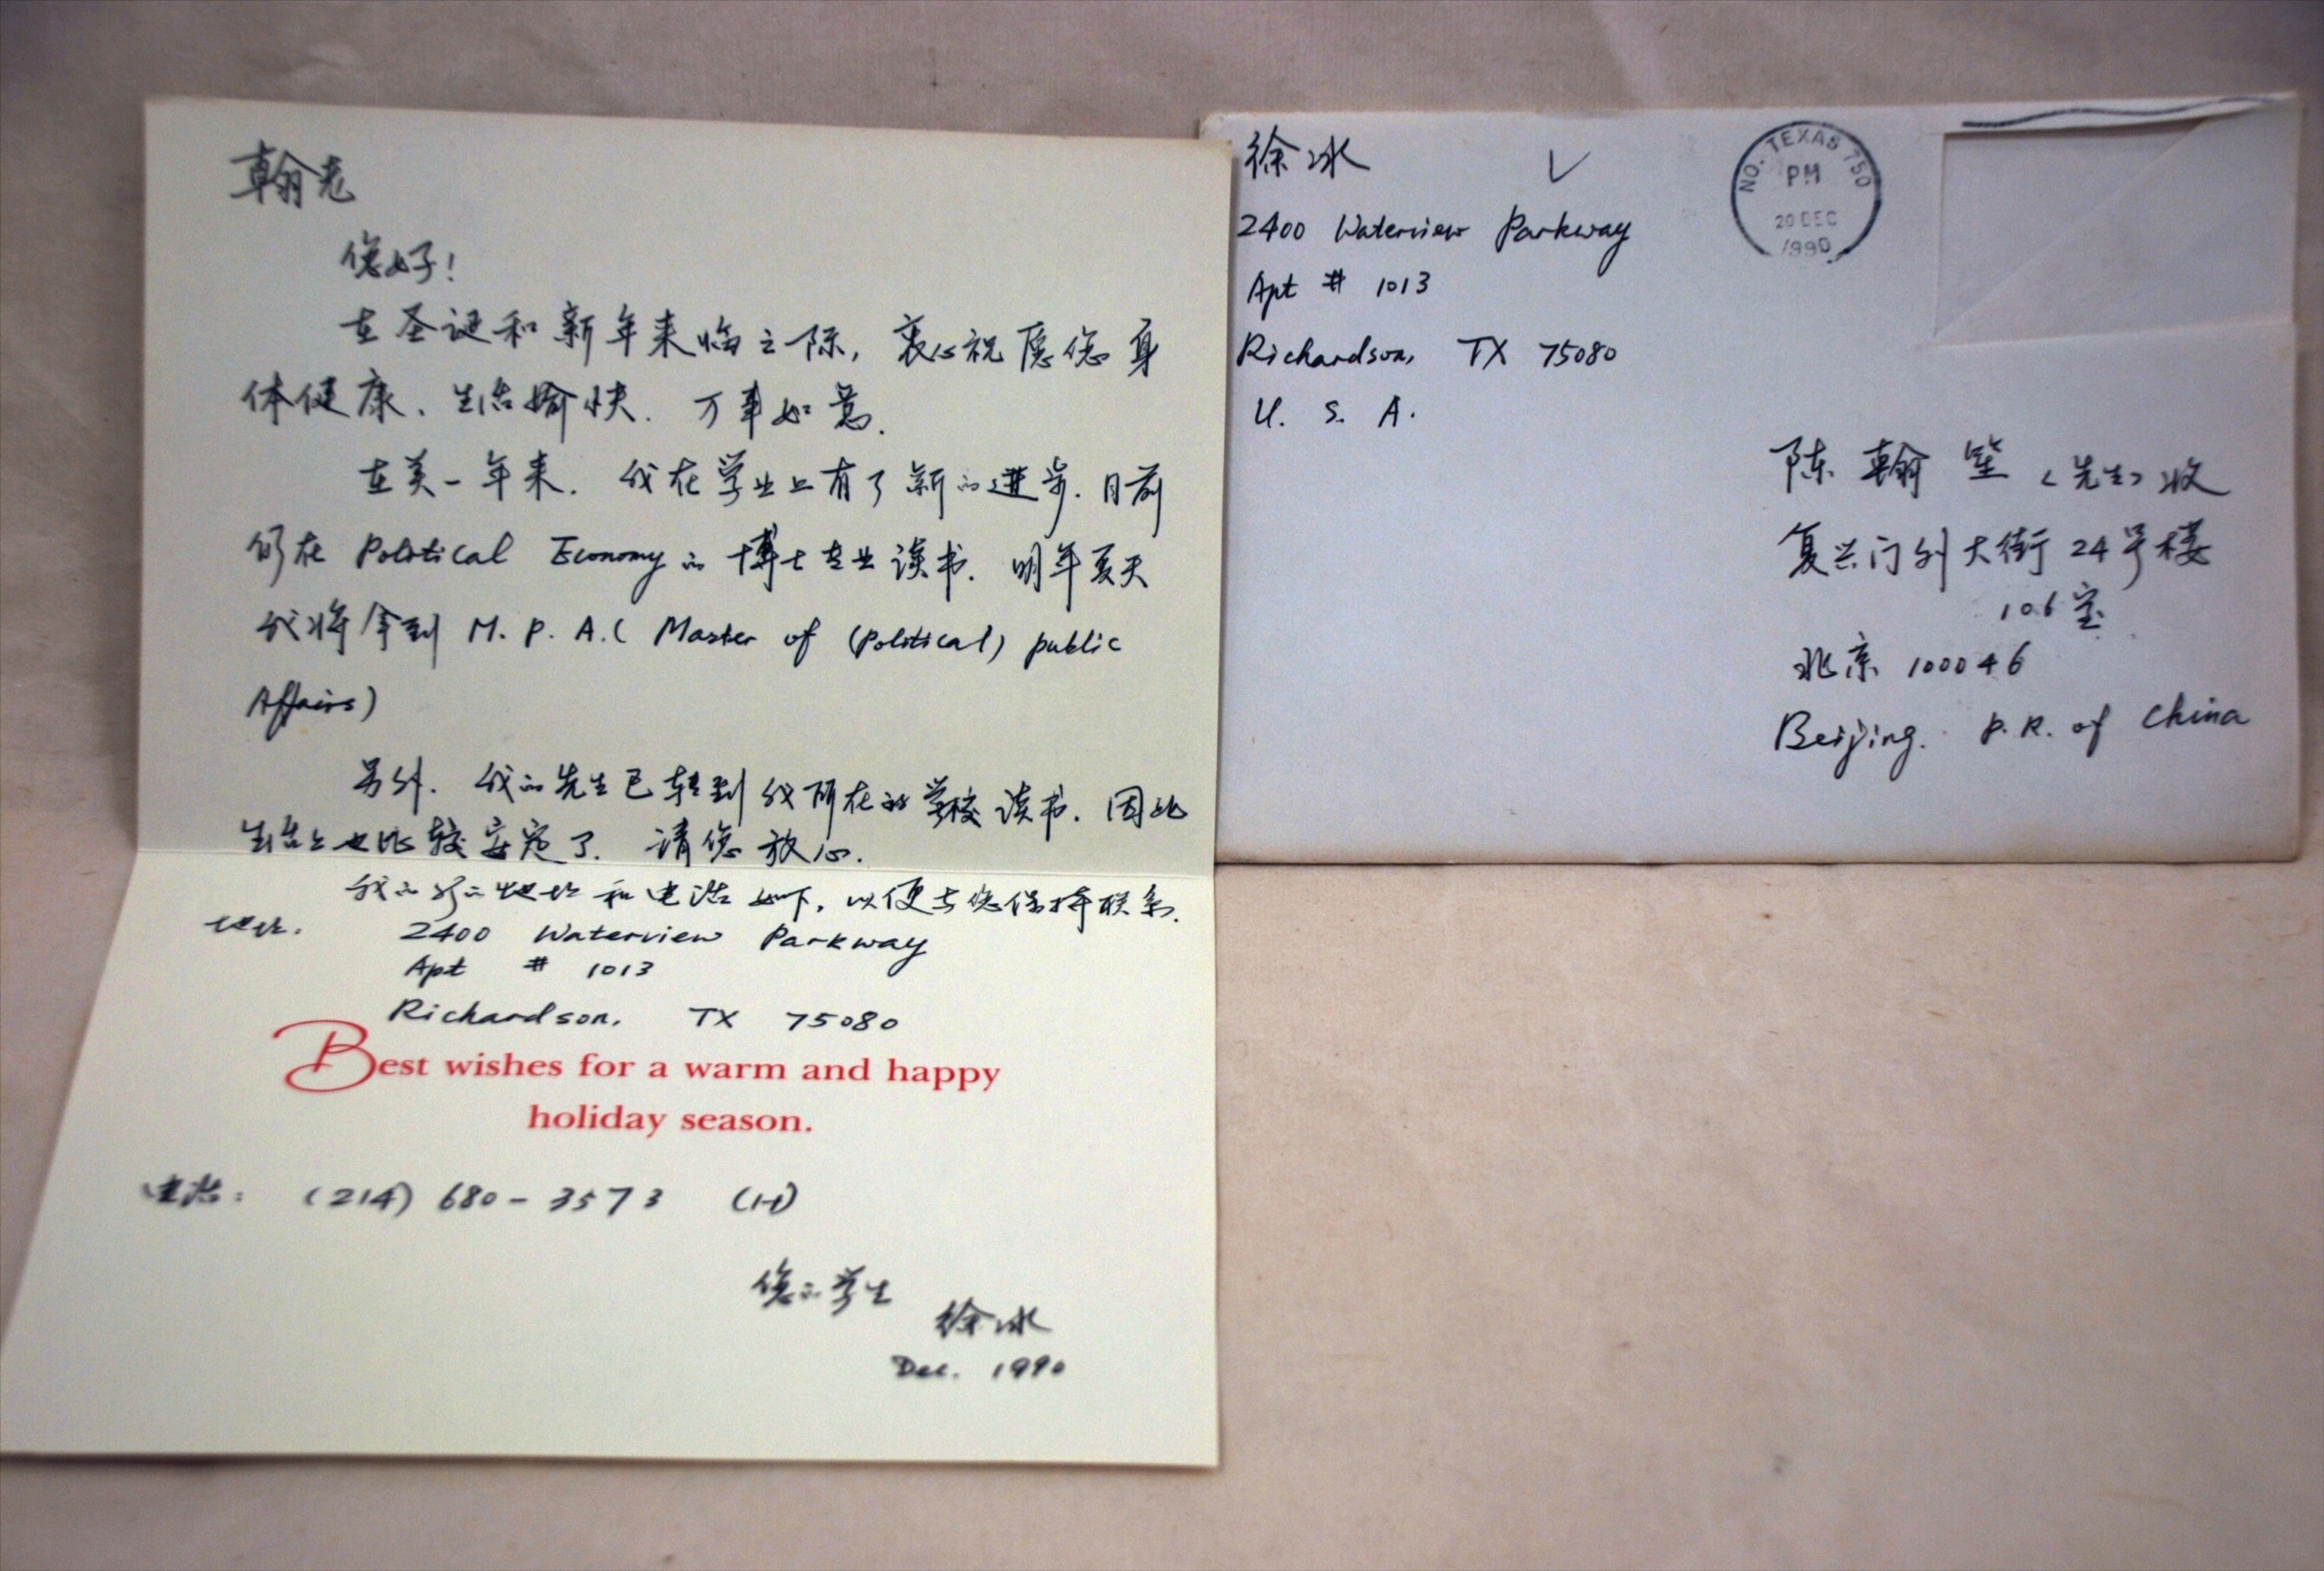 翰老
您好！
在圣诞和新年来临之际，衷心祝愿您身
体健康、生活愉快．万事如意．
在美一年来．我在学业上有了新的进步．目前
仍在 Political Economy 的博士专业读书．明年夏天
我将拿到 M. P. A. ( Master of (Political) public
Affairs)
另外．我的先生已转到我所在的学校读书．因此
生活上也比较安定了．请您放心．
我的新的地址和电话如下，以便与您保持联系．
地址． 2400 Waterview Parkway
Apt # 1013
Richardson, TX 75080
Best wishes for a warm and happy
holiday season.
电话： (214) 680-3573 (H)
您的学生
徐冰
Dec. 1990
徐冰
2400 Waterview Parkway
Apt # 1013
Richardson, TX 75080
U. S. A.
NO. TEXAS 750
PM
20 DEC
1990
陈翰笙（先生）收
复兴门外大街24号楼
106室
北京 100046
Beijing. P. R. of China